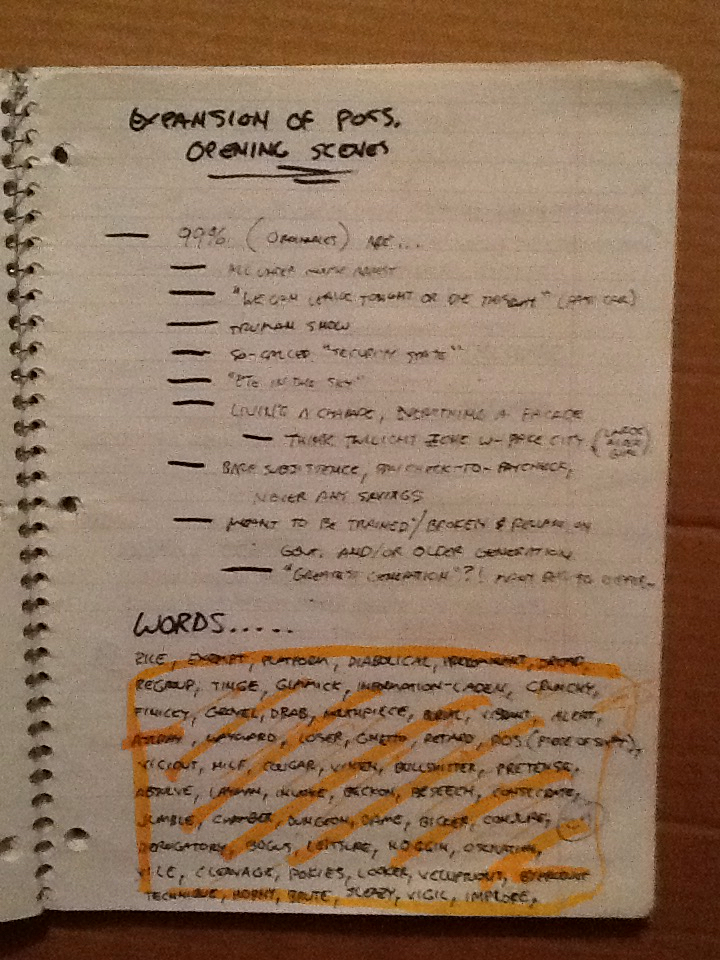 EXPANSION OF POSS.
OPENING SCENES
— 99% (ORDINARIES) ARE...
— ALL UNDER HOUSE ARREST
— "WE CAN LEAVE TONIGHT OR DIE THIS WAY" (FAST CAR)
— TRUMAN SHOW
— SO-CALLED "SECURITY STATE"
— "EYE IN THE SKY"
— LIVING A CHARADE, EVERYTHING A FACADE
— THINK TWILIGHT ZONE W- FAKE CITY (LARGE ALIEN GIRL)
— BARE SUBSISTENCE, PAYCHECK-TO-PAYCHECK,
NEVER ANY SAVINGS
— MEANT TO BE TRAINED/BROKEN & ON
GOVT. AND/OR OLDER GENERATION
— "GREATEST GENERATION"?! BEG TO DIFFER-
WORDS.....
EXEMPT, PLATFORM, DIABOLICAL, PREDOMINANT,
REGROUP, TINGE, GIMMICK, INFORMATION-LADEN, CRUNCHY,
FINICKY, GROVEL, DRAB, MOUTHPIECE, VIBRANT, ALERT,
WAYWARD, LOSER, GHETTO, RETARD, POS (PIECE OF SHIT),
VICIOUS, MILF, COUGAR, VIXEN, BULLSHITTER, PRETENSE,
ABSOLVE, LAYMAN, INVOKE, BECKON, BESEECH, CONSECRATE,
JUMBLE, CHAMBER, DUNGEON, DAME, BICKER, CONJURE,
DEROGATORY, BOGUS, LEISURE, NOGGIN,
VILE, CLEAVAGE, POKIES, LOOKER,
TECHNIQUE, HORNY, BRUTE, SLEAZY, VIGIL, IMPLORE,